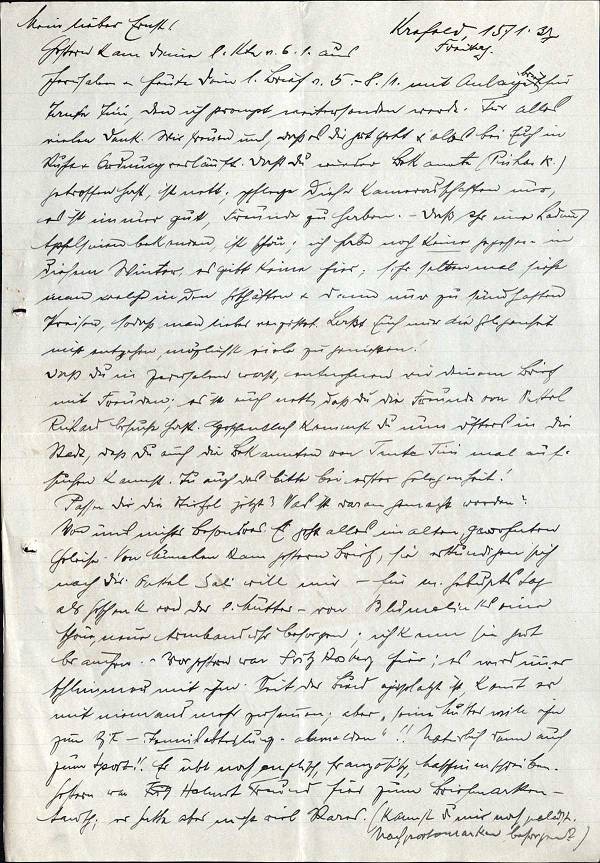 Mein lieber Ernst! Krefeld, 15/1. 37
Freitag.
Gestern kam deine l. Kte v. 6. 1. aus
Jerusalem u. heute dein l. Brief v. 5 - 8./1. mit Anlage für
Tante Tini, den ich prompt weitersenden werde. Für alles
vielen Dank. Wir freuen uns, daß es dir gut geht & alles bei Euch in
Ruhe & Ordnung verläuft. Daß du wieder Bekannte (Richard K.)
getroffen hast, ist nett, pflege diese Kameradschaften nur,
es ist immer gut, Freunde zu haben. - Daß Ihr eine Ladung
Apfelsinen bekamen, ist schön; ich habe noch keine gegessen in
diesem Winter, es gibt keine hier; sehr selten mal sieht
man welche in den Geschäften & dann nur zu sündhaften
Preisen, sodaß man lieber verzichtet. Laßt Euch nur die Gelegenheit
nicht entgehen, möglichst viele zu genießen!
Daß du in Jerusalem warst, entnehmen wir deinem Brief
mit Freuden; es ist auch nett, daß du die Freunde von Onkel
Richard besucht hast. Hoffentlich kommst du nun öfters in die
Stadt, daß du auch die Bekannten von Tante Tini mal auf-
suchen kannst. Tu auch das bitte bei erster Gelegenheit!
Passen dir die Stiefel jetzt? Was ist daran gemacht worden?
Von uns nichts Besonderes. Es geht alles im alten, gewohnten
Geleise. Von München kam gestern Brief, sie erkundigen sich
nach dir. Onkel Sali will mir - zu m. Geburtstag
als Geschenk von der l. Mutter - von Blümelink eine
schöne, neue Armbanduhr besorgen; ich kann sie gut
brauchen. - Vorgestern war Fritz hier; es wird immer
schlimmer mit ihm. Seit der Bund aufgelöst ist, kommt er
mit niemand mehr zusammen; aber "seine Mutter will ihn
zum - Tennisabteilung - abmelden"!! Natürlich dann auch
zum Sport!! Er übt noch englisch, französisch, Maschinenschreiben.
Gestern war Helmut Freund hier zum Briefmarken-
tausch; er hatte aber nicht viel Rares. (Kannst du mir noch paläst.
Nachportomarken besorgen?)